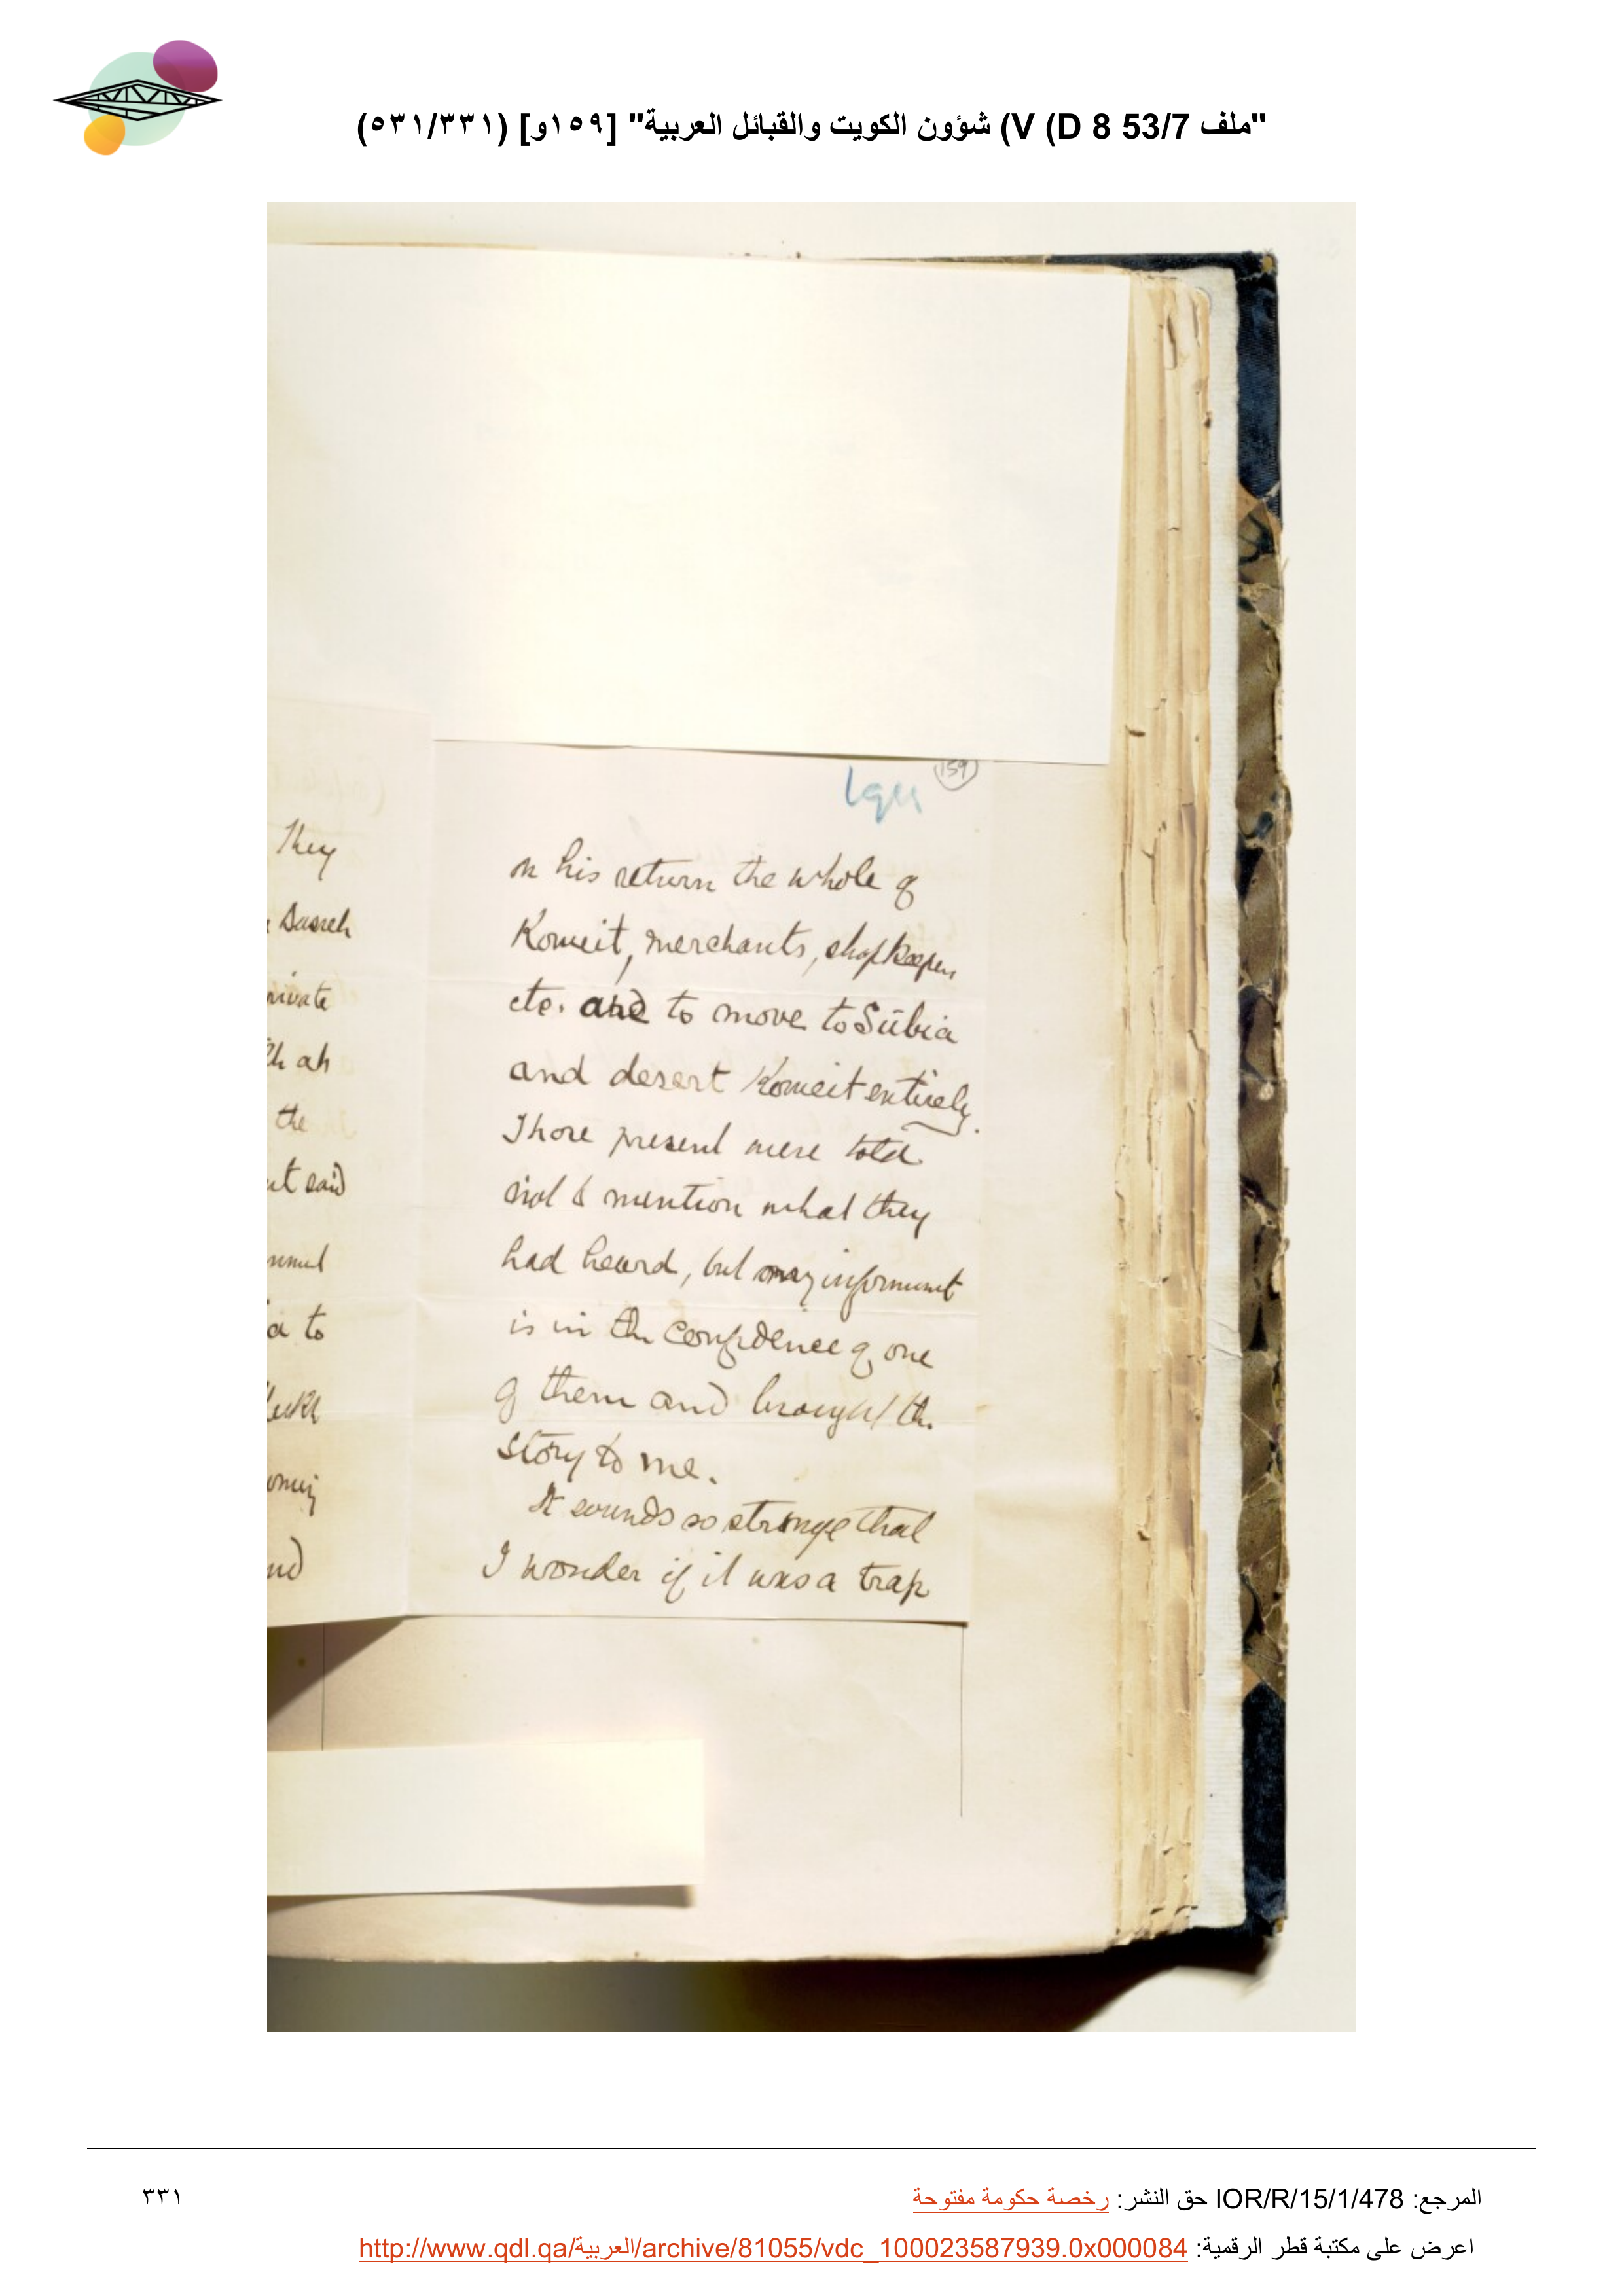 "ملف 53/7 V (D 8) شؤون الكويت والقبائل العربية" [١٥٩و] (٥٣١/٣٣١)
159
They
on his return the whole of
Koweit, merchants, shopkeepers
etc. and to move to Sūbia
and desert Koweit entirely.
Those present were told
not to mention what they
had heard, but my informant
is in the confidence of one
of them and brought the
story to me.
It sounds so strange that
I wonder if it was a trap
the
said
to
المرجع: IOR/R/15/1/478 حق النشر: رخصة حكومة مفتوحة
٣٣١
اعرض على مكتبة قطر الرقمية: http://www.qdl.qa/العربية/archive/81055/vdc_100023587939.0x000084